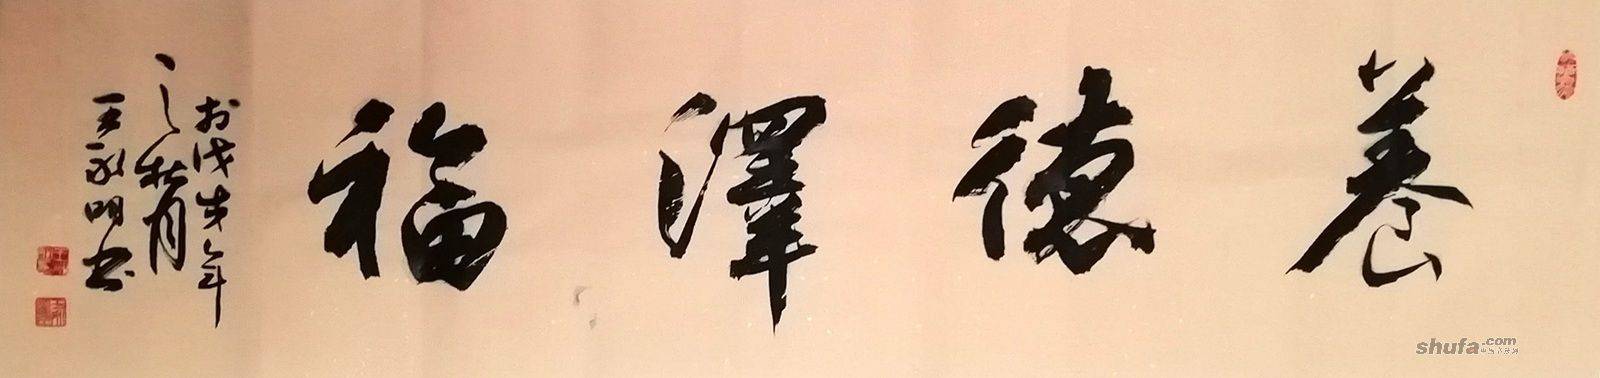 養德澤福
於戊戌年
之秋月
王永明书
shufa.com